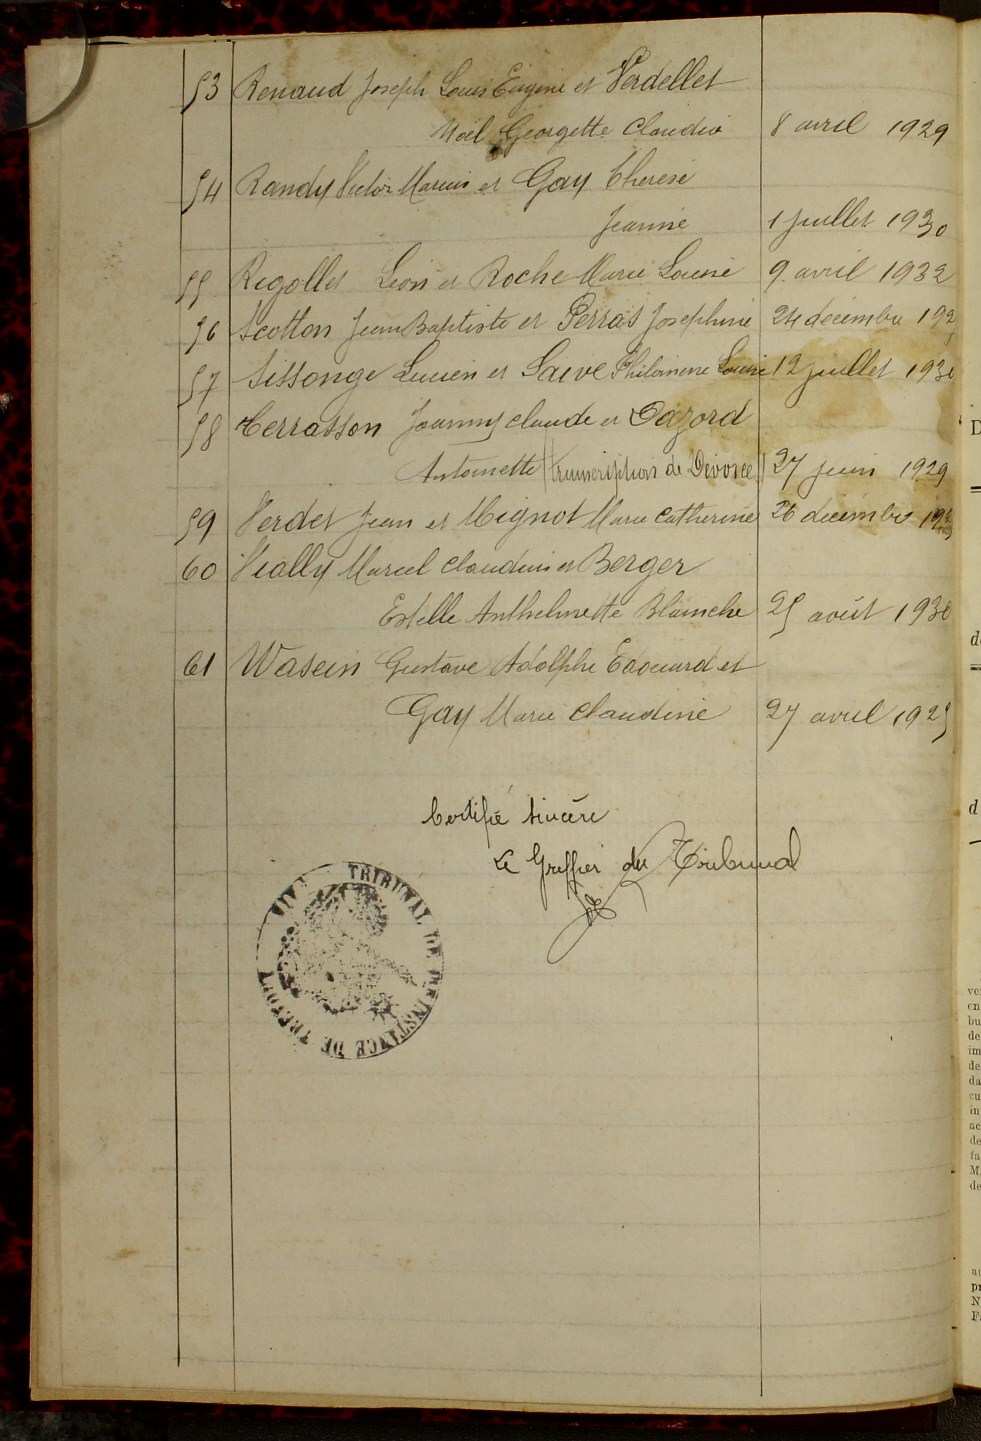 53 Renaud Joseph Louis Eugène et Verdellet
Noël Georgette Claudia 8 avril 1929
54 Randy Victor Marius et Gay Thérèse
Jeanne 1 juillet 1930
55 Rigollet Léon et Roche Marie Louise 9 avril 1932
56 Scotton Jean Baptiste et Perras Joséphine 24 décembre 192
57 Sissonge Lucien et Saive Philomène Louise 12 juillet 193
58 Terrasson Joanny Claude et Dazord
Antoinette (transcription de Divorce) 27 juin 1929
59 Verdet Jean et Mignot Marie Catherine 26 décembre
60 Vially Marcel Claudius et Berger
Estelle Anthelmette Blanche 25 août 193
61 Wasein Gustave Adolphe Edouard et
Gay Marie Claudine 27 avril 1925
Certifié sincère
Le Greffier du Tribunal
TRIBUNAL DE INSTANCE DE
D
d
d
ve
en
bu
de
im
de
da
cu
in
ac
de
fa
M.
de
pr
N
F